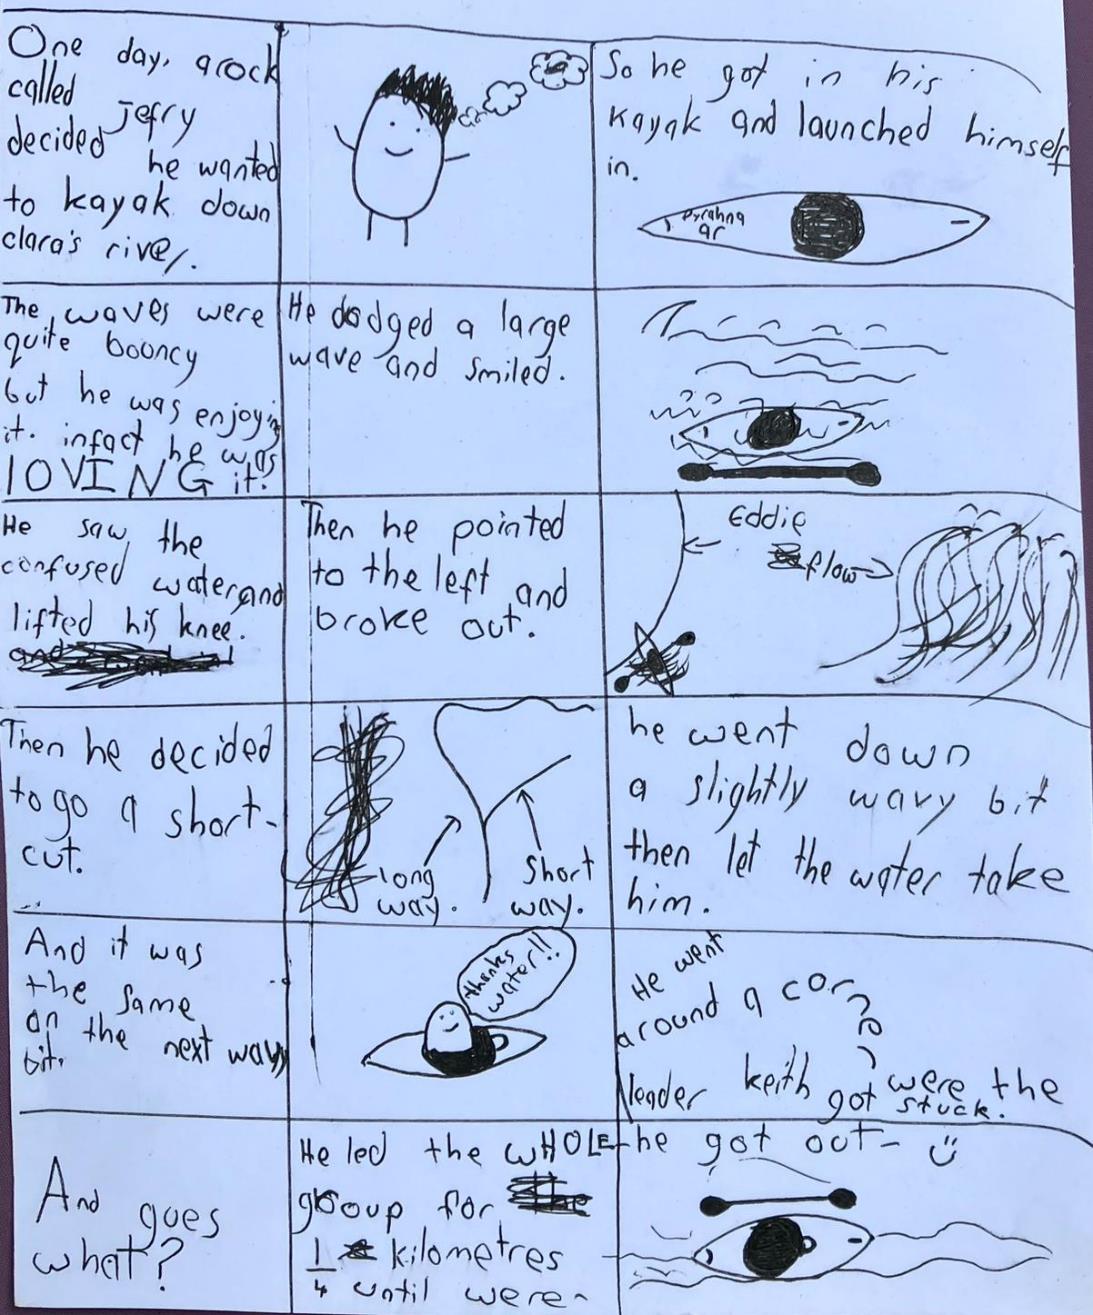 One day, a rock
called
Jerry
decided
he wanted
to kayak down
clara's river.
So he got in his
kayak and launched himself
in.
pyrahna
ar
The waves were
quite booncy
but he was enjoying
it. infact he was
lOVING it!
He dodged a large
wave and smiled.
He saw the
confused water and
lifted his knee.
Then he pointed
to the left and
broke out.
Eddie
flow
Then he decided
to go a short-
cut.
long
way.
Short
way.
he went down
a slightly wavy bit
then let the water take
him.
And it was
the same
on the next wavy
bit.
thanks
water!!
He went
around a corner
were the
leader keith got
stuck.
And goes
what?
He led the WHOLE
group for
1/4 kilometres
until were-
he got out-